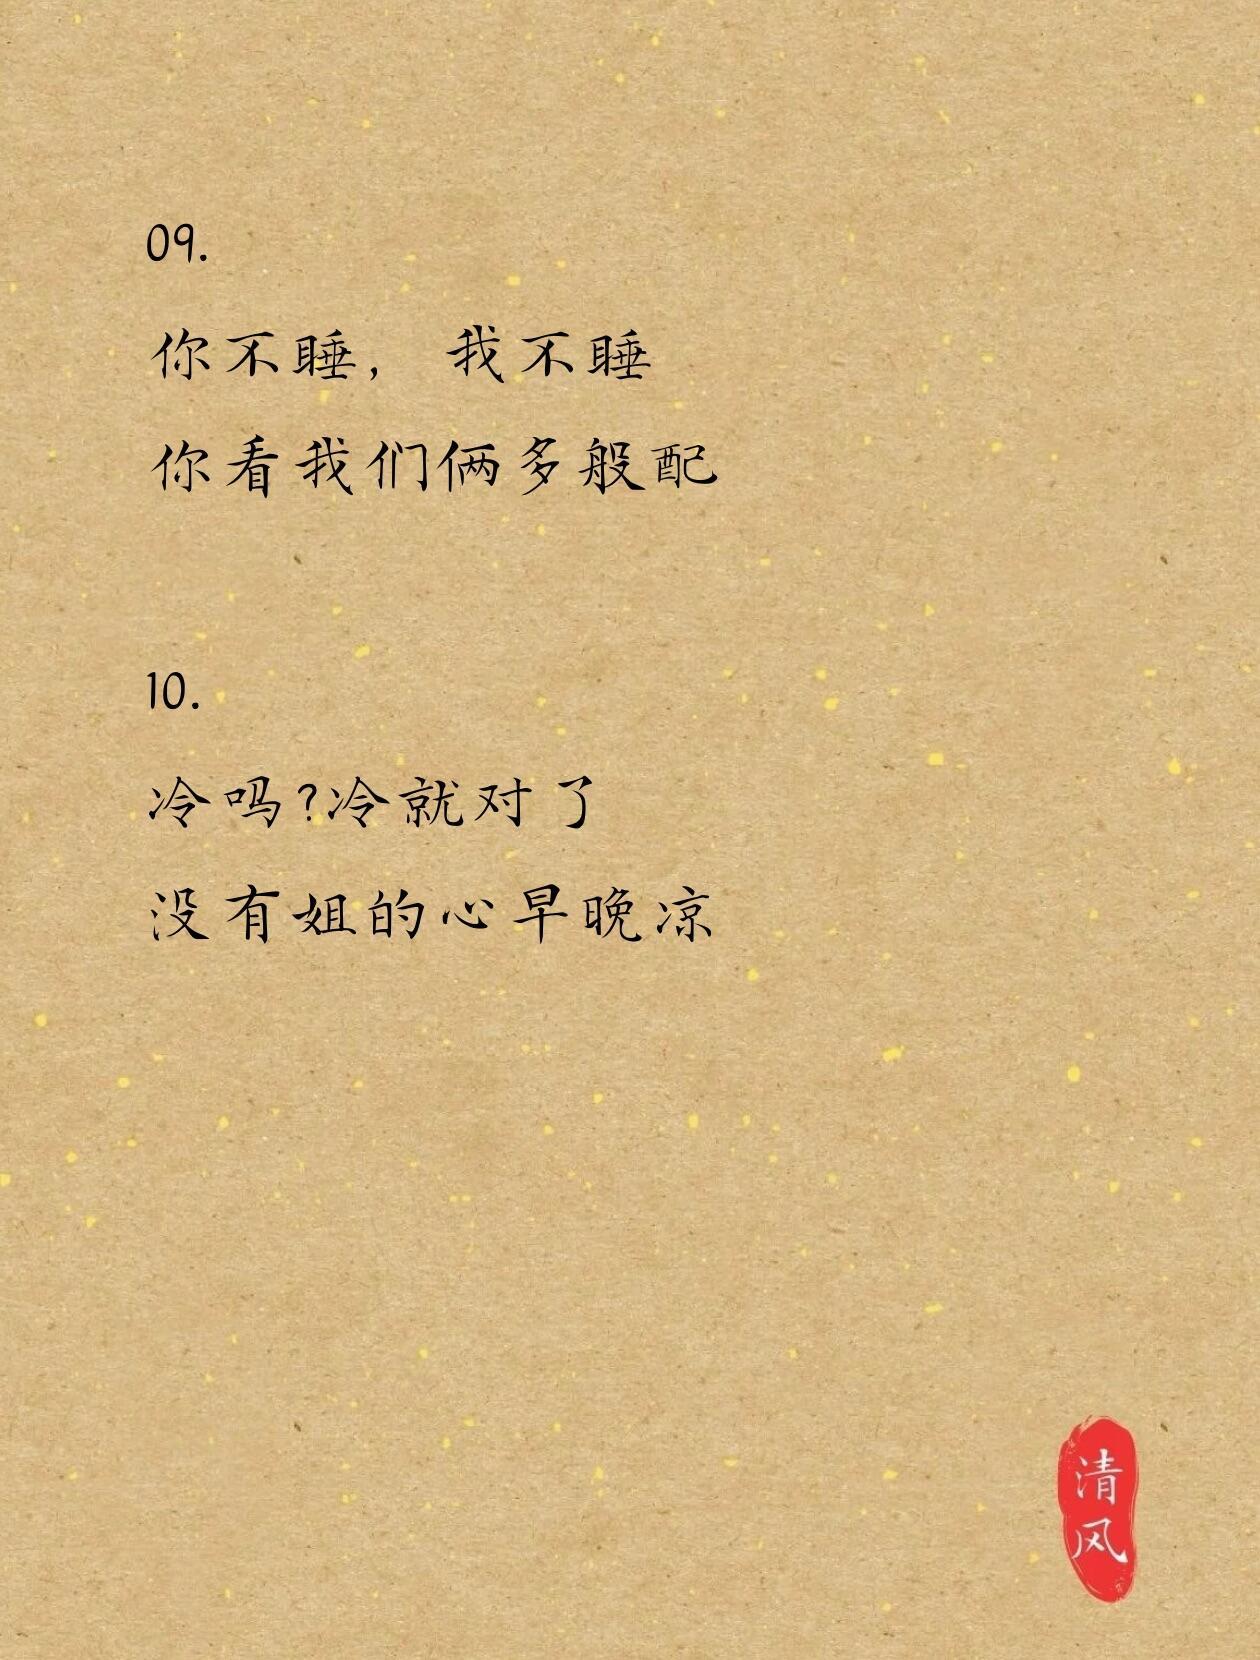 09.
你不睡，我不睡
你看我们俩多般配
10.
冷吗?冷就对了
没有姐的心早晚凉
清风